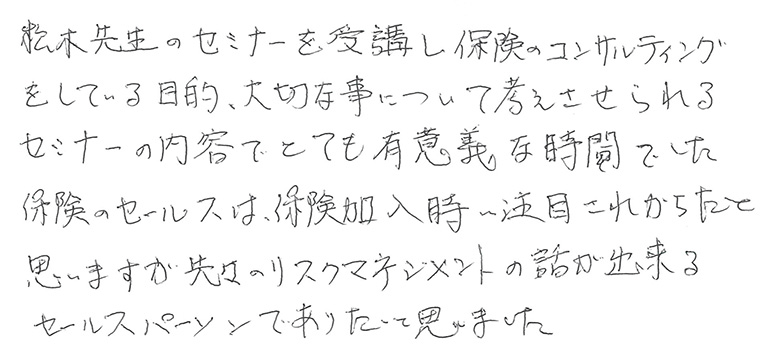 松木先生のセミナーを受講し保険のコンサルティング
をしている目的、大切な事について考えさせられる
セミナーの内容でとても有意義な時間でした
保険のセールスは、保険加入時に注目されがちだと
思いますが先々のリスクマネジメントの話が出来る
セールスパーソンでありたいと思いました